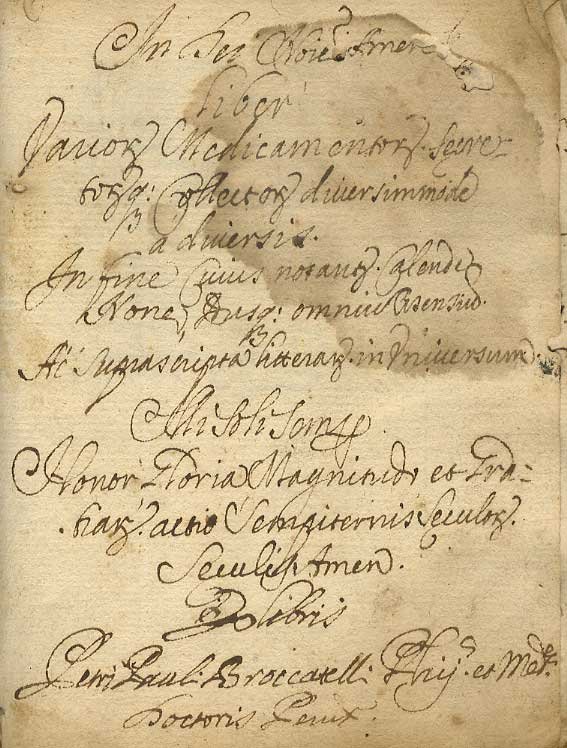 In Dei Noiē Amen
Liber
Varior Medicamentor. Secre-
torq: Collector diversimmode
a diversis.
In fine Cuius notant. Calende
None, Idusq: omniū Mensiū.
Ac Suprascripta litterar. in Universum.
Illi Soli Semp
Honor Gloria Magnitudo et Gra-
tiar. actio Sempiternis Seculor.
Seculis Amen.
Ex libris
Petri Paul: Broccatelli Phij. et Med.
Doctoris